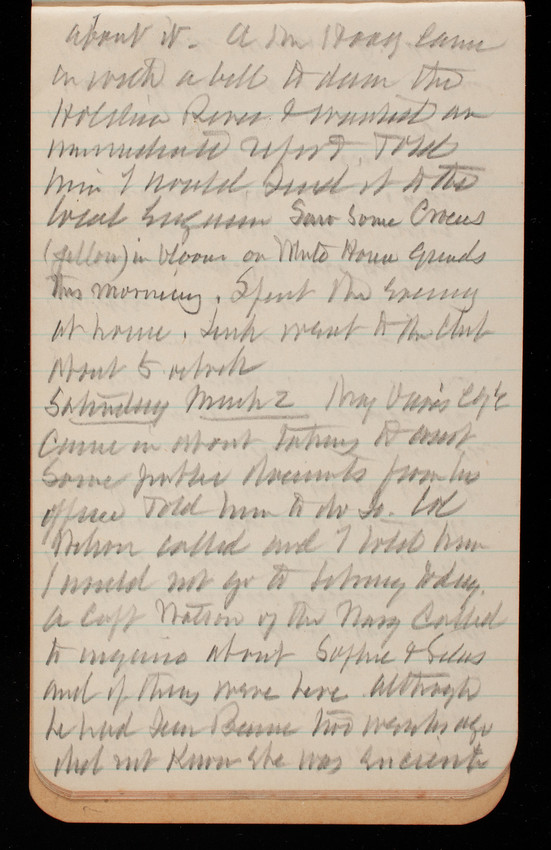 about it. A Mr Hoag came
in with a bill to dam the
Holston River & wanted an
immediate report. Told
him I would send it to the
local Engineer Saw some Crocus
(yellow) in bloom on White House grounds
this morning. Spent the evening
at home. went to the Club
about 5 oclock
Saturday March 2 Maj Davis
came in about to
some public documents from his
office Told him to do so. Col
Wilson called and I told him
I would not go to today.
A Capt Watson of the Navy called
to inquire about Sophie &
and if they were here although
he had seen two weeks ago
did not know she was